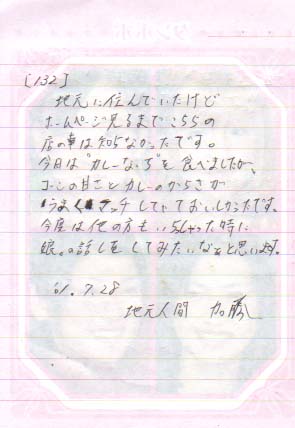 [132]
地元に住んでいたけど
ホームページ見るまでこちらの
店の事は知らなかったです。
今日は"カレーなっち"を食べましたが、
コーンの甘さとカレーのからさが
うまくマッチしてておいしかったです。
今度は他の方もいらしゃった時に
娘。の話しをしてみたいなぁと思います。
01.7.28
地元人間 加藤